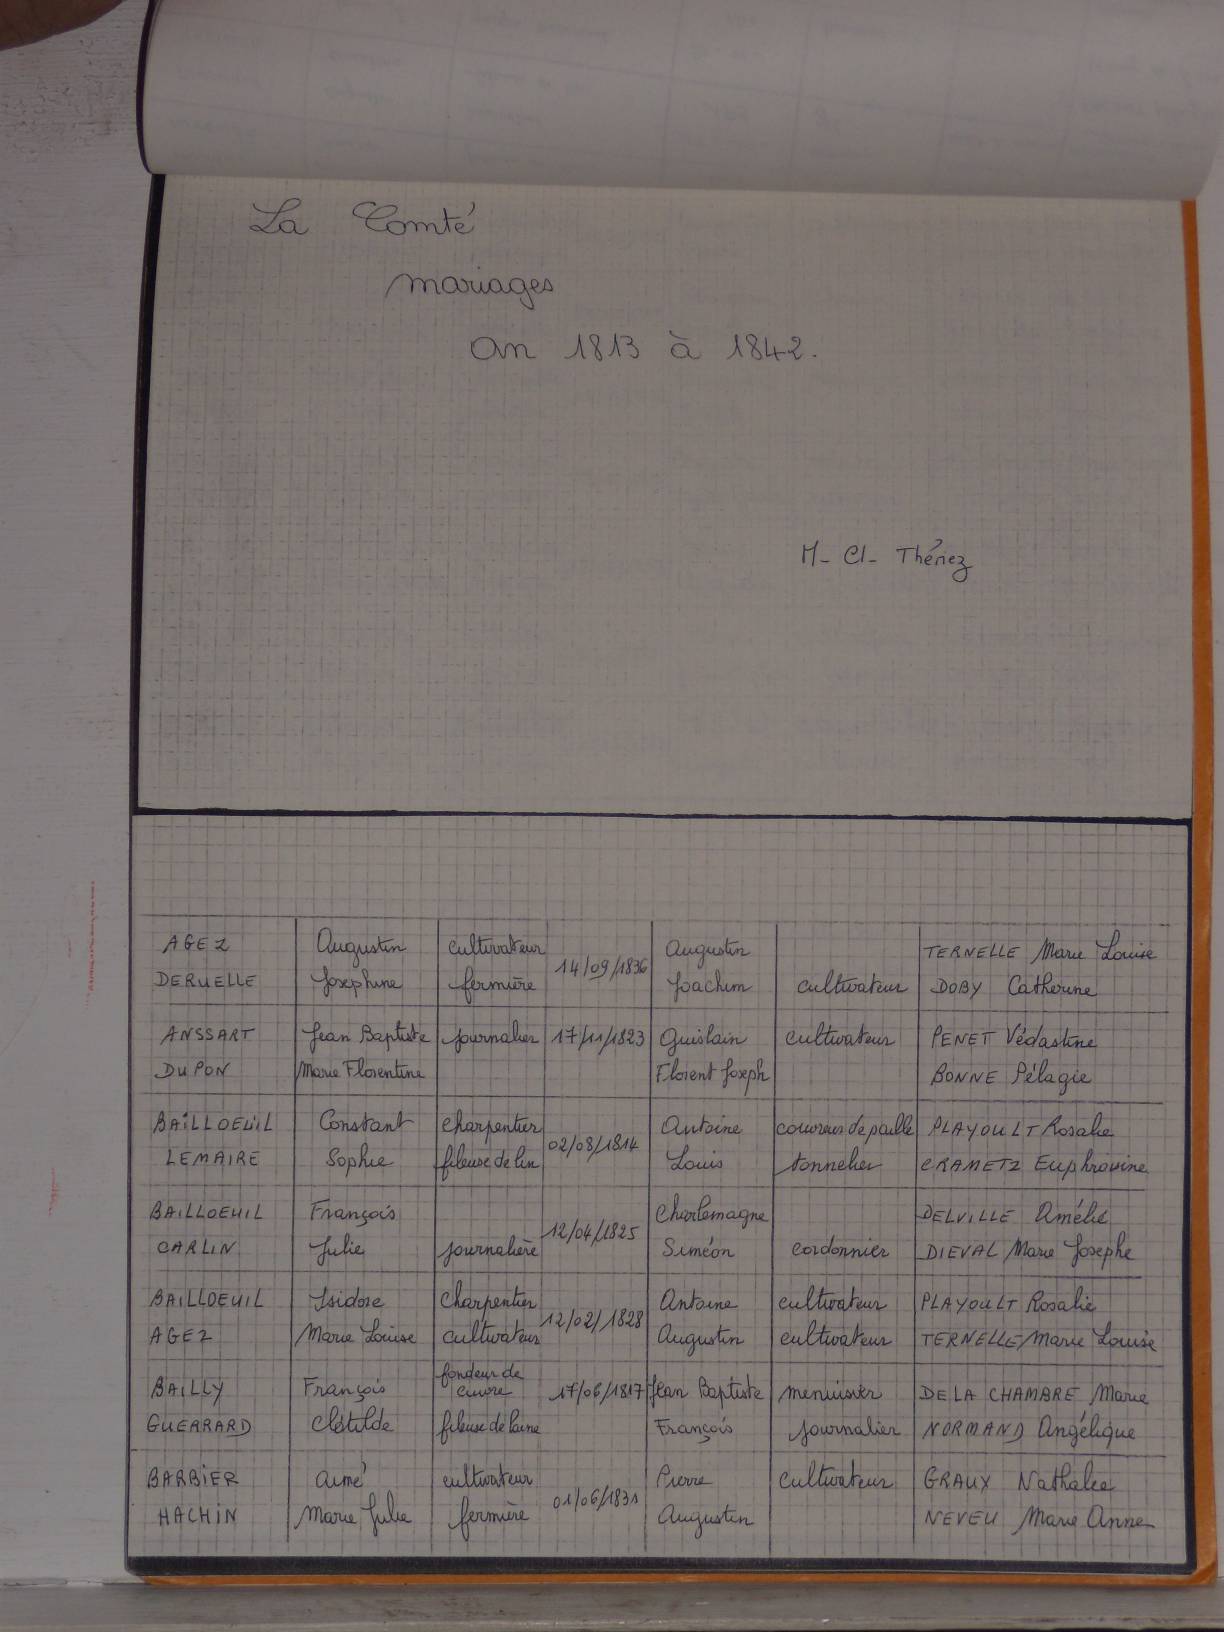 La Comté
mariages
an 1813 à 1842.
M- Cl- Thériez
AGEZ Augustin cultivateur 14/09/1836 Augustin TERNELLE Marie Louise
DERUELLE Josephine fermière Joachim cultivateur DOBY Catherine
ANSSART Jean Baptiste journalier 17/11/1823 Guislain cultivateur PENET Védastine
DUPON Marie Florentine Florent Joseph BONNE Pélagie
BAILLOEUIL Constant charpentier 02/08/1814 Antoine couvreur de paille PLAYOULT Rosalie
LEMAIRE Sophie fileuse de lin Louis tonnelier CRAMETZ Euphrosine
BAILLOEUIL François 12/04/1825 Charlemagne DELVILLE Amélie
CARLIN Julie journalière Siméon cordonnier DIEVAL Marie Josephe
BAILLOEUIL Isidore charpentier 12/02/1828 Antoine cultivateur PLAYOULT Rosalie
AGEZ Marie Louise cultivateur Augustin cultivateur TERNELLE Marie Louise
BAILLY François fondeur de cuivre 17/06/1817 Jean Baptiste menuisier DE LA CHAMBRE Marie
GUERRARD Clotilde fileuse de laine François journalier NORMAND Angélique
BARBIER Aimé cultivateur 01/06/1831 Pierre cultivateur GRAUX Nathalie
HACHIN Marie Julie fermière Augustin NEVEU Marie Anne